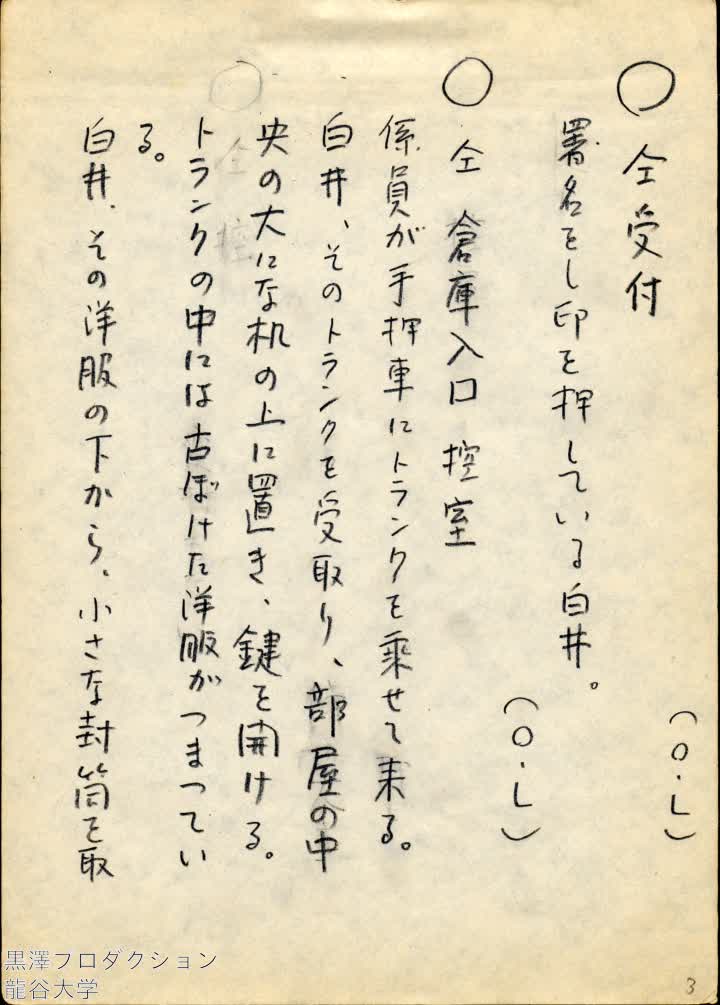 ○ 仝受付
(O・L)
署名をし印を押している白井。
○ 仝 倉庫入口 控室
(O・L)
係員が手押車にトランクを乗せて来る。
白井、そのトランクを受取り、部屋の中
央の大になな机の上に置き、鍵を開ける。
トランクの中には古ぼけた洋服がつまつてい
る。
白井、その洋服の下から、小さな封筒を取
3
黒澤プロダクション
龍谷大学